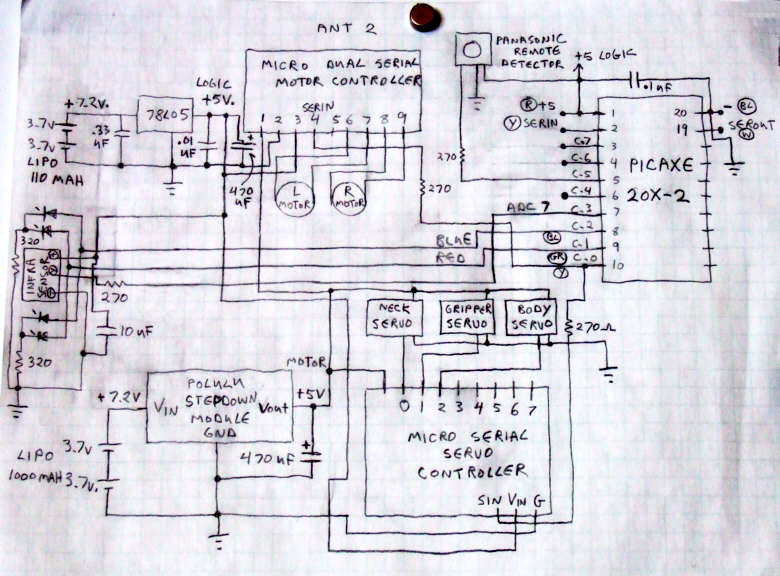 ANT 2
PANASONIC
REMOTE
DETECTOR
+5 LOGIC
.1uF
MICRO DUAL SERIAL
MOTOR CONTROLLER
SERIN
1 2 3 4 5 6 7 8 9
LOGIC
+5V.
+7.2V.
78L05
3.7V
3.7V
LIPO
110 MAH
.33
uF
.01
uF
470
uF
L
MOTOR
R
MOTOR
270
270
R +5
Y SERIN
C.7
C.6
C.5
C.4
ADC 7 C.3
C.2
BL C.1
GR C.0
Y
1
2
3
4
5
6
7
8
9
10
PICAXE
20X-2
20
19
- BL
SEROUT
W
BLUE
RED
320
INFRA
SENSOR
270
10uF
320
NECK
SERVO
GRIPPER
SERVO
BODY
SERVO
270Ω
MOTOR
+5V
+7.2V
POLULU
STEPDOWN
MODULE
VIN
Vout
GND
470uF
LIPO
1000MAH
3.7V
3.7V.
0 1 2 3 4 5 6 7
MICRO SERIAL
SERVO
CONTROLLER
SIN VIN G